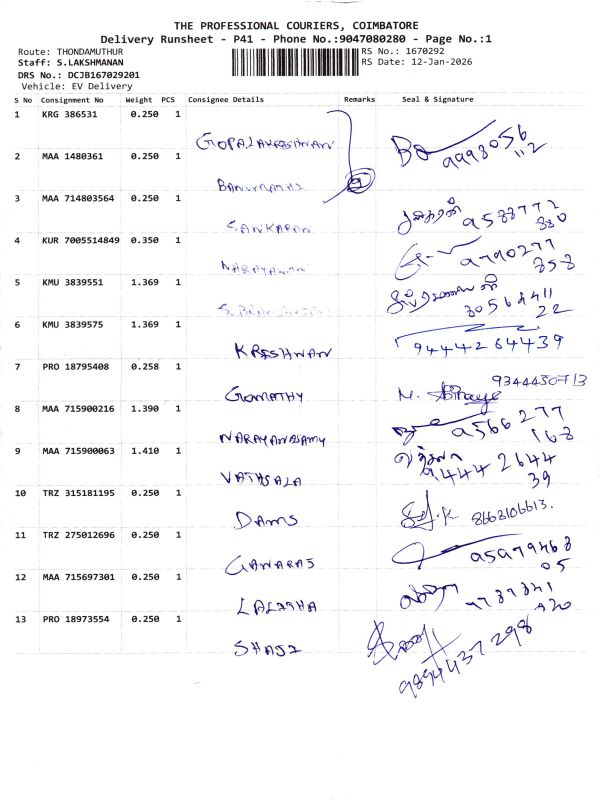 THE PROFESSIONAL COURIERS, COIMBATORE
Delivery Runsheet - P41 - Phone No.:9047080280 - Page No.:1
Route: THONDAMUTHUR
RS No.: 1670292
Staff: S.LAKSHMANAN
RS Date: 12-Jan-2026
DRS No.: DCJB167029201
Vehicle: EV Delivery
S No Consignment No Weight PCS Consignee Details Remarks Seal & Signature
1 KRG 386531 0.250 1
GOPALAKRISHNAN
9993056
112
2 MAA 1480361 0.250 1
BANUMATHI
3 MAA 714803564 0.250 1
SANKARAN
4 KUR 7005514849 0.350 1
NARAYANAN
9790277
858
5 KMU 3839551 1.369 1
6 KMU 3839575 1.369 1
KRISHNAN 9444264439
7 PRO 18795408 0.258 1
GOMATHY
8 MAA 715900216 1.390 1
NARAYANASAMY 9566277
168
9 MAA 715900063 1.410 1
VATHSALA 9444 2644
39
10 TRZ 315181195 0.250 1
DAMS 8668106613.
11 TRZ 275012696 0.250 1
12 MAA 715697301 0.250 1
13 PRO 18973554 0.250 1
SHAJI
9894437298